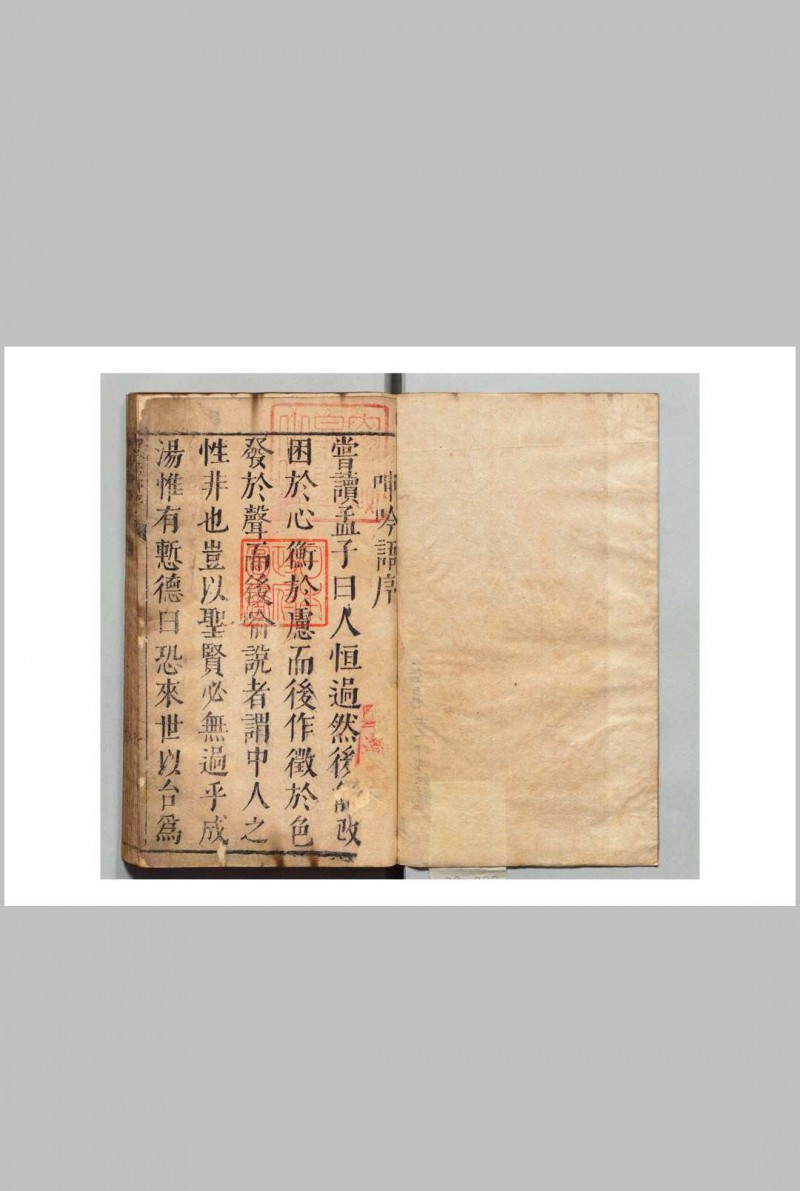 呻吟語序
嘗讀孟子曰人恒過然後能改
困於心衡於慮而後作徵於色
發於聲而後喻說者謂中人之
性非也豈以聖賢必無過乎成
湯惟有慙德曰恐來世以台爲